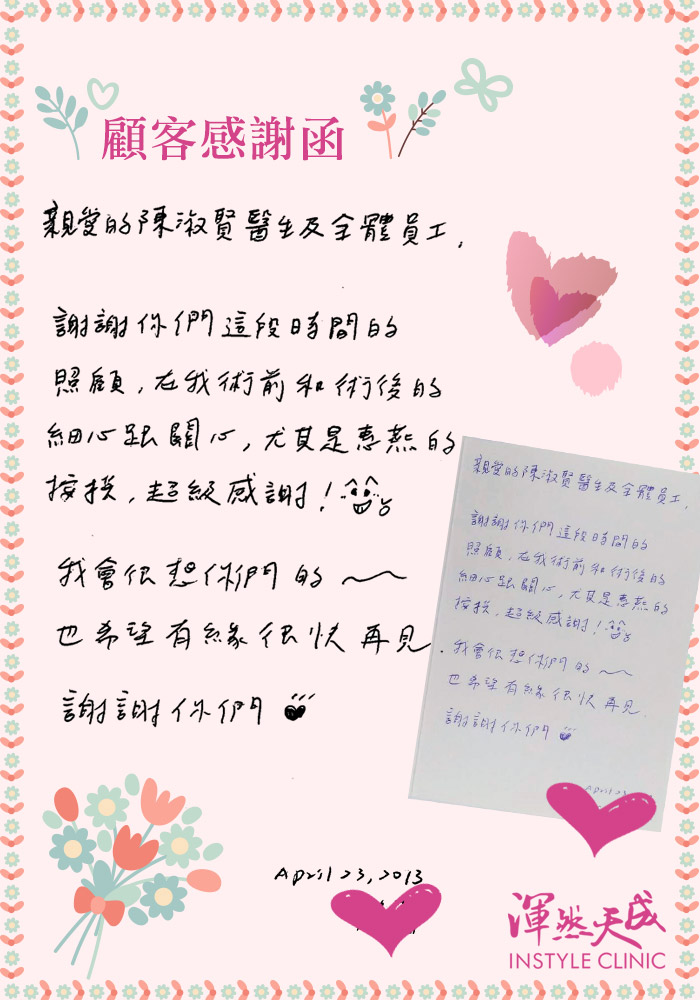 顧客感謝函
親愛的陳淑賢醫生及全體員工,
謝謝你們這段時間的
照顧,在我術前和術後的
細心跟關心,尤其是惠燕的
接挨,超級感謝!
我會很想你們的~~
也希望有緣很快再見.
謝謝你們
April 23, 2013
親愛的陳淑賢醫生及全體員工,
謝謝你們這段時間的
照顧,在我術前和術後的
細心跟關心,尤其是惠燕的
接挨,超級感謝!
我會很想你們的~~
也希望有緣很快再見
謝謝你們
April 23
渾然天成
INSTYLE CLINIC